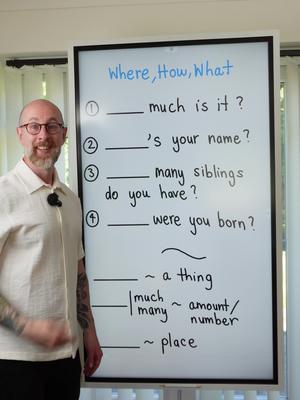 Where, How, What
① ____ much is it?
② ____'s your name?
③ ____ many siblings
do you have?
④ ____ were you born?
____ ~ a thing
____ | much
many ~ amount/
number
____ ~ place